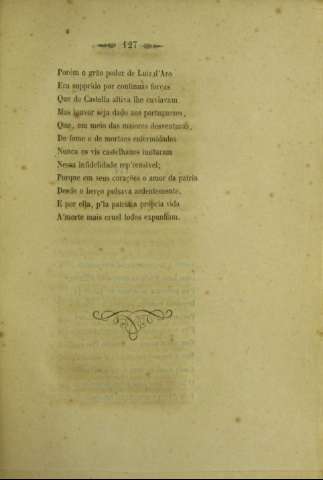 127
Porém o grão poder de Luiz d'Aro
Era supprido por continuas forças
Que de Castella altiva lhe enviavam
Mas louvor seja dado aos portuguezes,
Que, em meio das maiores desventuras,
De fome e de mortaes enfermidades
Nunca os vis castelhanos imitaram
Nessa infidelidade rep'rensivel;
Porque em seus corações o amor da patria
Desde o berço pulsava ardentemente,
E por ella, p'la patria a propria vida
A' morte mais cruel todos expunham.